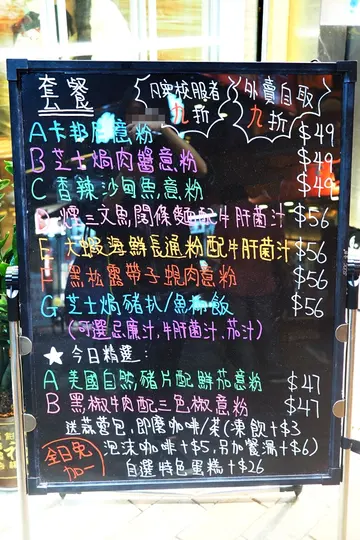 套餐
穿校服者
九折
外賣自取
九折
A 卡邦尼意粉 $49
B 芝士焗肉醬意粉 $49
C 香辣沙甸魚意粉 $49
D 煙三文魚闊條麵配牛肝菌汁 $56
E 大蝦海鮮長通粉配牛肝菌汁 $56
F 黑松露帶子蝦肉意粉 $56
G 芝士焗豬扒/魚柳飯 $56
(可選忌廉汁,牛肝菌汁,茄汁)
★今日精選:
A 美國自然豬片配鮮茄意粉 $47
B 黑椒牛肉配三色椒意粉 $47
送蒜蓉包,即磨咖啡/茶(凍飲+$3
泡沫咖啡+$5,另加餐湯+$6)
自選特色蛋糕+$26
全日免
加一